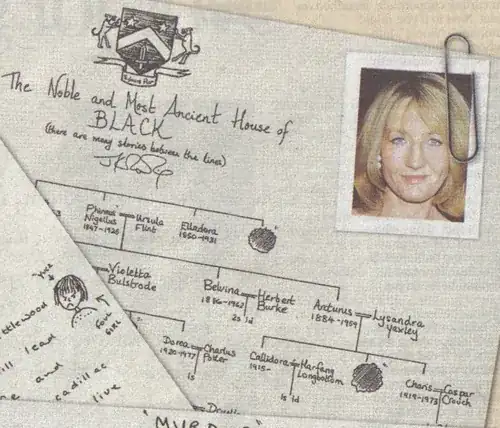 The Noble and Most Ancient House of
BLACK
(there are many stories between the lines)
Phineas
Nigellus
1847-1925
Ursula
Flint
Elladora
1850-1931
3
Violetta
Bulstrode
Belvina
1886-1962
Herbert
Burke
2s 1d
Arcturus
1884-1959
Lysandra
Yaxley
Dorea
1920-1977
Charlus
Potter
1s
Callidora
1915-
Harfang
Longbottom
1s 1d
Charis
1919-1973
Caspar
Crouch
foul
girl
lead
and
cadillac
live